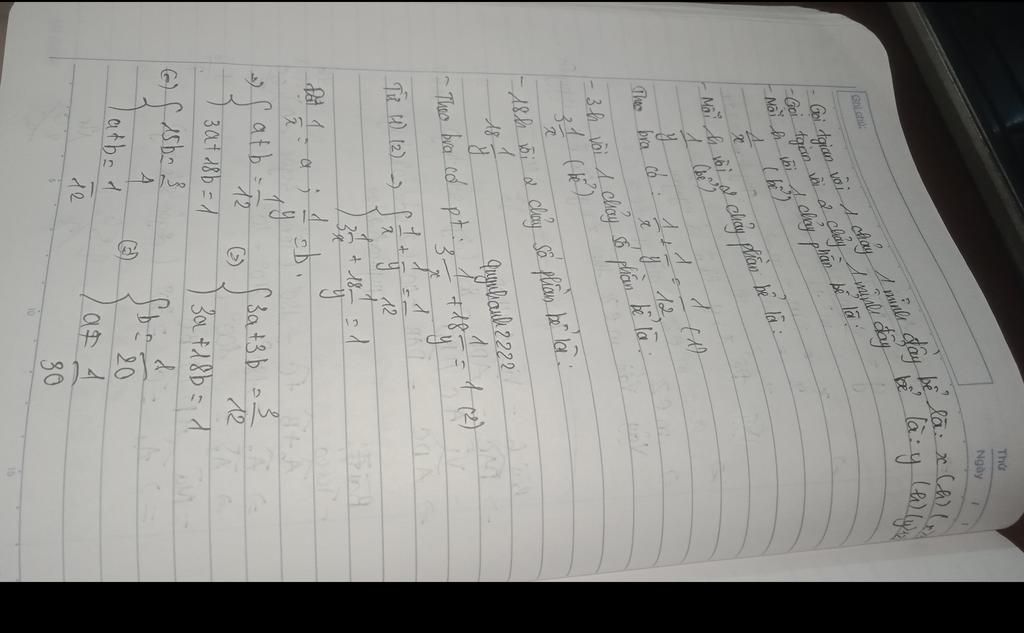 Thứ
Ngày
- Gọi tgian vòi 1 chảy 1 mình đầy bể là: x (h) (x
- Gọi tgian vòi 2 chảy 1 mình đầy bể là: y (h) (y>
- Mỗi h vòi 1 chảy phần bể là:
1/x (bể)
- Mỗi h vòi 2 chảy phần bể là:
1/y (bể)
Theo bra có: 1/x + 1/y = 1/12 (1)
- 3h vòi 1 chảy số phần bể là:
3 1/x (bể)
- 18h vòi 2 chảy số phần bể là:
18 1/y
Quynhanh2222
- Theo bra có pt: 3 1/x + 18 1/y = 1 (2)
Từ (1) (2) → { 1/x + 1/y = 1/12
3 1/x + 18 1/y = 1
Đặt 1/x = a ; 1/y = b.
→ { a+b = 1/12 (=) { 3a+3b = 3/12
3a+18b = 1 3a+18b = 1
(=) { 15b = 3/4 (=) { b = 1/20
a+b = 1/12 a = 1/30